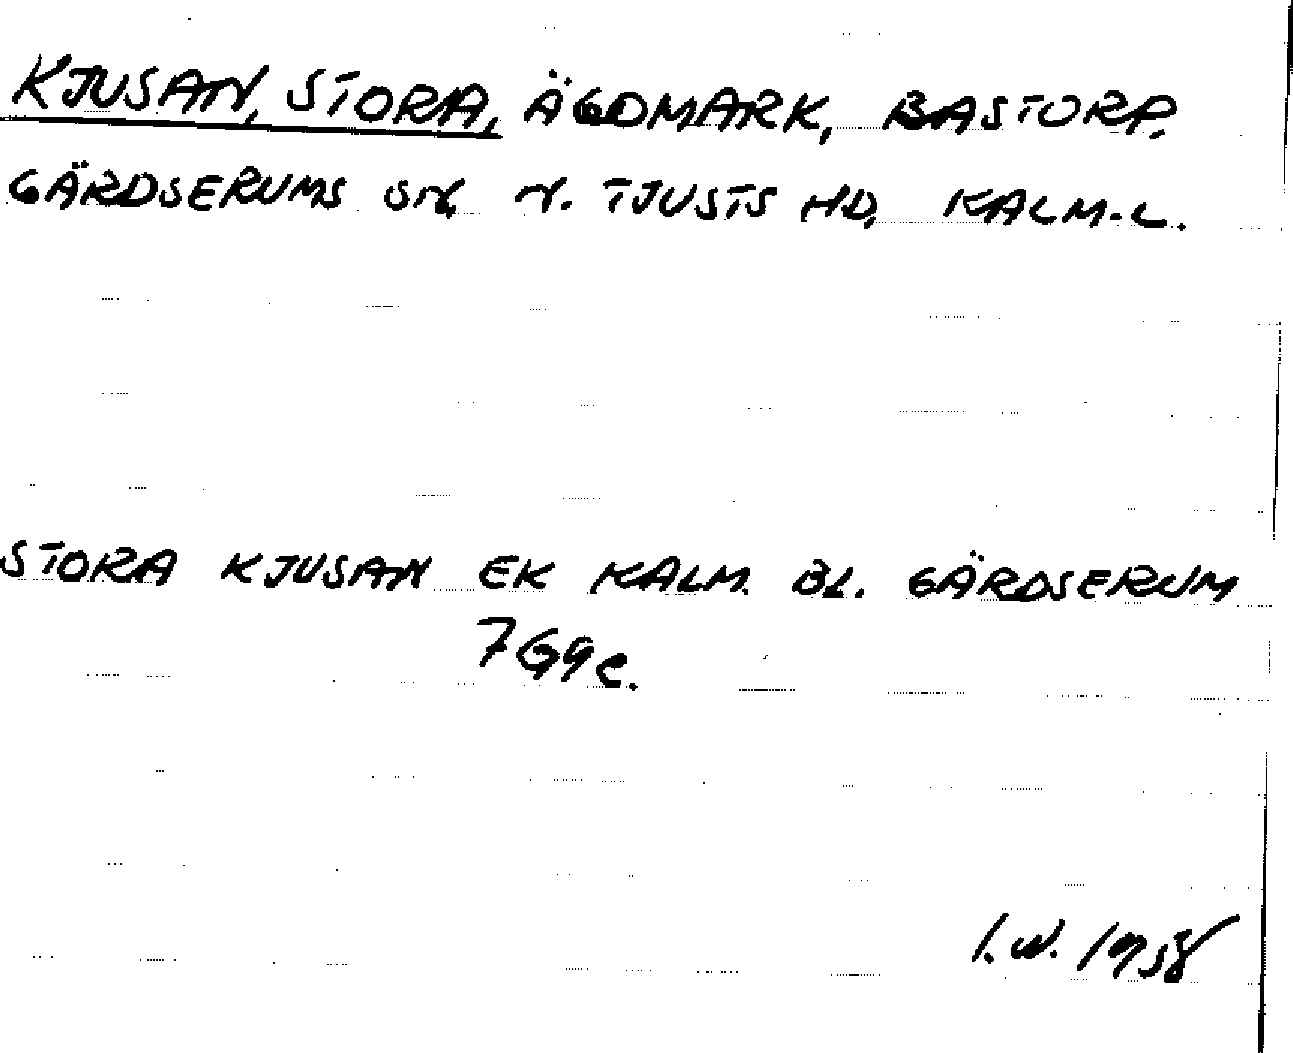 KJUSAN, STORA, ÄGOMARK, BASTORP.
GÄRDSERUMS SN, N. TJUSTS HD, KALM.L.
STORA KJUSAN EK KALM. BL. GÄRDSERUM
7G9c.
I.W. 1958